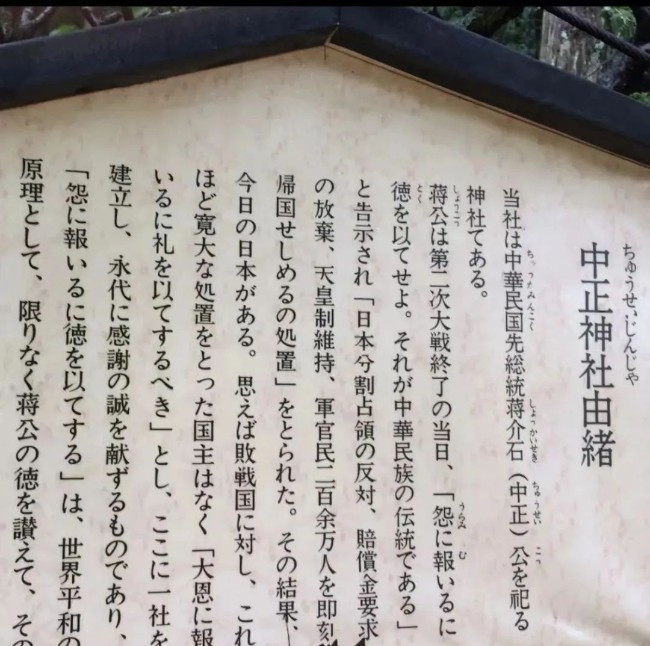 中正神社由緒
当社は中華民国先総統蒋介石（中正）公を祀る
神社である。
蒋公は第二次大戦終了の当日、「怨に報いるに
徳を以てせよ。それが中華民族の伝統である」
と告示され「日本分割占領の反対、賠償金要求
の放棄、天皇制維持、軍官民二百余万人を即刻
帰国せしめるの処置」をとられた。その結果、
今日の日本がある。思えば敗戦国に対し、これ
ほど寛大な処置をとった国主はなく「大恩に報
いるに礼を以てするべき」とし、ここに一社を
建立し、永代に感謝の誠を献ずるものであり、
「怨に報いるに徳を以てする」は、世界平和の
原理として、限りなく蒋公の徳を讃えて、その